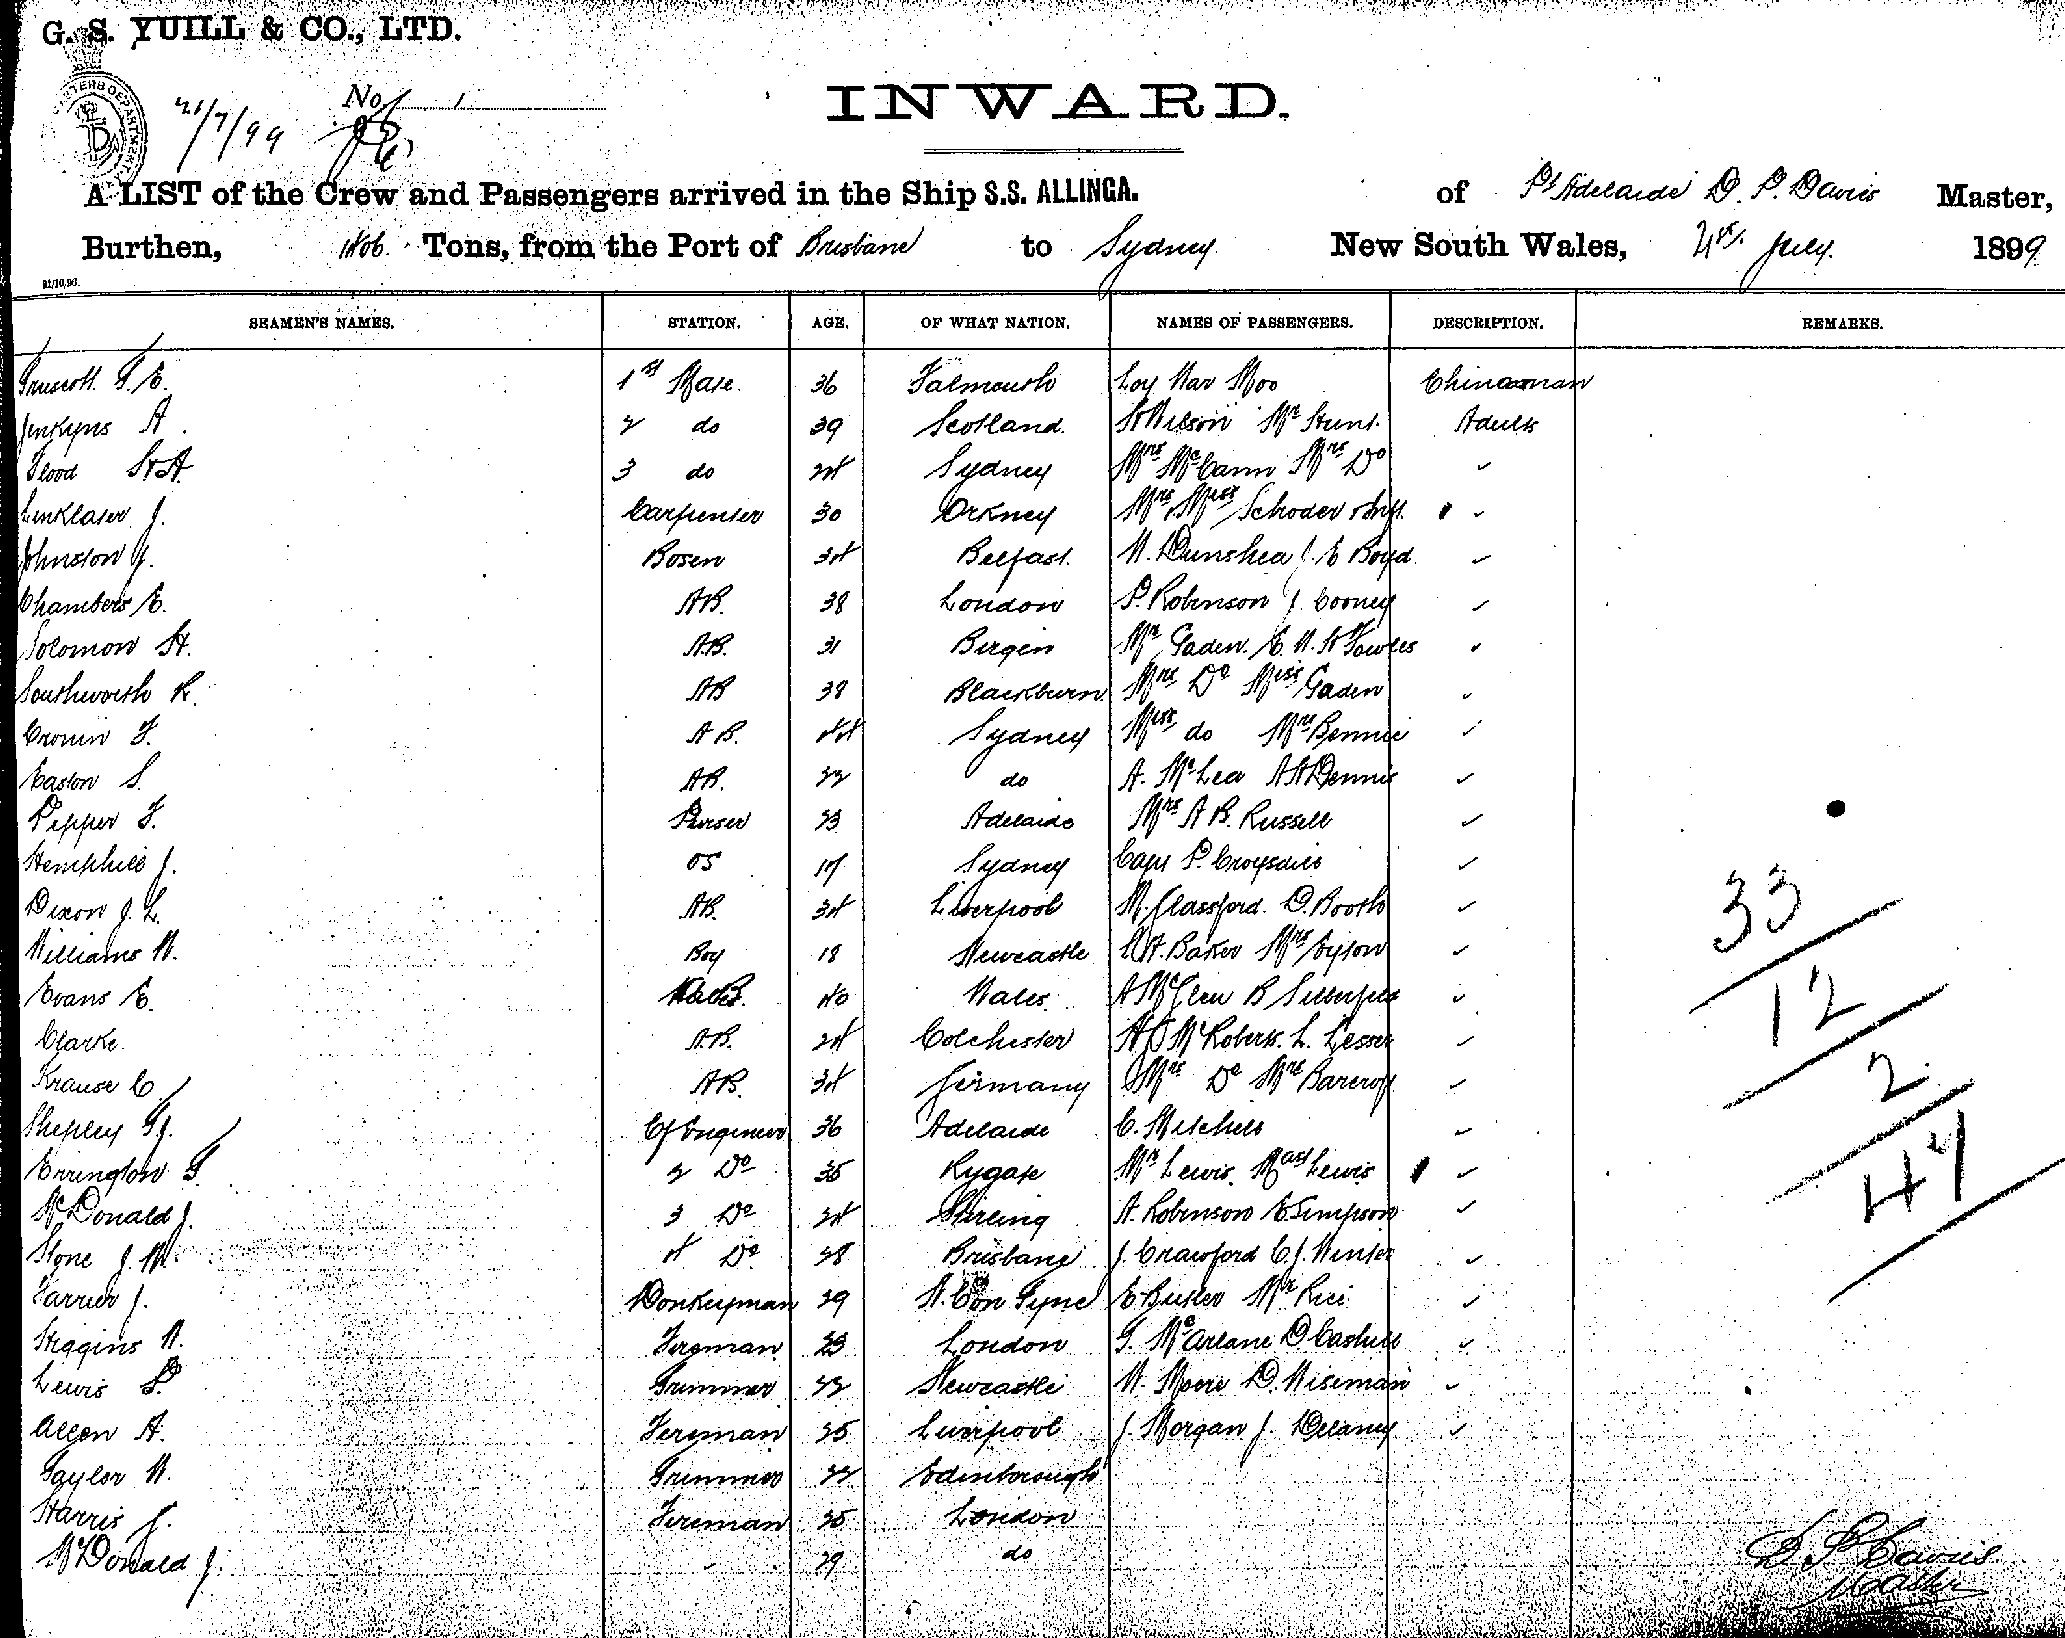 G. S. YUILL & CO., LTD.
21/7/99
No 1
INWARD.
A LIST of the Crew and Passengers arrived in the Ship S.S. ALLINGA. of Pt Adelaide D. P. Davis Master,
Burthen, Tons, from the Port of Brisbane to Sydney New South Wales, July 1899
SEAMEN'S NAMES. STATION. AGE. OF WHAT NATION. NAMES OF PASSENGERS. DESCRIPTION. REMARKS.
Truscott T. E. 1st Mate. 36 Falmouth Loy Mar Moo Chinaman
Jenkyns A. 2 do 39 Scotland. H Wilson Mr Hunt. Adults
Flood H A 3 do 24 Sydney Mrs McCann Mrs Do
Linklater J. Carpenter 30 Orkney Mrs Miss Schoder & Inft.
Johnston J. Bosen 34 Belfast. W. Dunshea J. E Boyd
Chambers E. AB. 38 London P. Robinson J. Cooney
Solomon H. A.B. 31 Bergin Mr Gaden. E. W. H Fowles
Southworth R. AB 38 Blackburn Mrs Do Miss Gaden
Cronin F. A B. 44 Sydney Miss do Mrs Bennie
Easton S. AB. 22 do A. McLea A H Dennis
Pepper F. Purser 23 Adelaide Mrs A B. Russell
Hemphill J. OS 17 Sydney Capt P. Croysdill
Dixon J. L. AB. 34 Liverpool M. Glassford. D. Booth
Williams W. Boy 18 Newcastle A. Baker Mrs
Evans E. 40 Wales. A McGlew B Silberfeld
Clarke. A.B. 24 Colchester McRoberts. L. Lesser
Krause C. AB. 34 Germany Mrs Do Mrs Barcroft
Shepley T J. Cf Engineer 36 Adelaide C. Mitchell
Errington T. 2 Do 35 Rygate Mr Lewis. Mast Lewis
McDonald J. 3 Do 24 Stirling A. Robinson E Simpson
Stone J. W. 4 Do 28 Brisbane J. Crawford C J. Winter
Farrier J. Donkeyman 29 N. C on Tyne E. Butler Mr Rice
Higgins W. Fireman 23 London G. McCarlane D Cashill
Lewis D. Trimmer 22 Newcastle W. Moore D. Wiseman
Allen A. Fireman 25 Liverpool J. Morgan J. Delaney
Taylor W. Trimmer 22 Edinborough
Harris J. Fireman 25 London
McDonald J. 29 do
33
12
2
47
D. P. Davis
Master